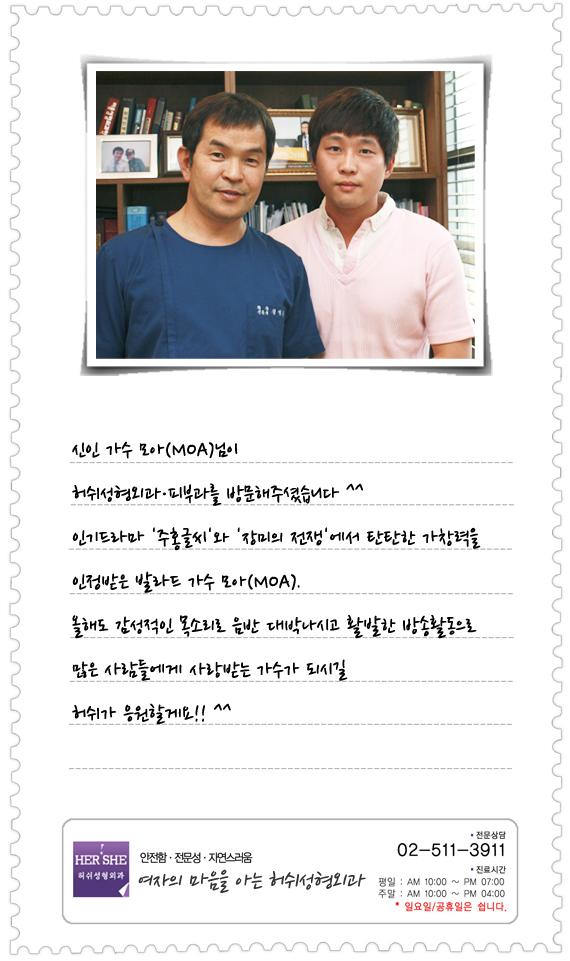 신인 가수 모아(MOA)님이
허쉬성형외과·피부과를 방문해주셨습니다 ^^
인기드라마 '주홍글씨'와 '장미의 전쟁'에서 탄탄한 가창력을
인정받은 발라드 가수 모아(MOA).
올해도 감성적인 목소리로 음반 대박나시고 활발한 방송활동으로
많은 사람들에게 사랑받는 가수가 되시길
허쉬가 응원할게요!! ^^
HER'SHE
허쉬성형외과
안전함 · 전문성 · 자연스러움
여자의 마음을 아는 허쉬성형외과
전문상담
02-511-3911
진료시간
평일 : AM 10:00 ~ PM 07:00
주말 : AM 10:00 ~ PM 04:00
* 일요일/공휴일은 쉽니다.